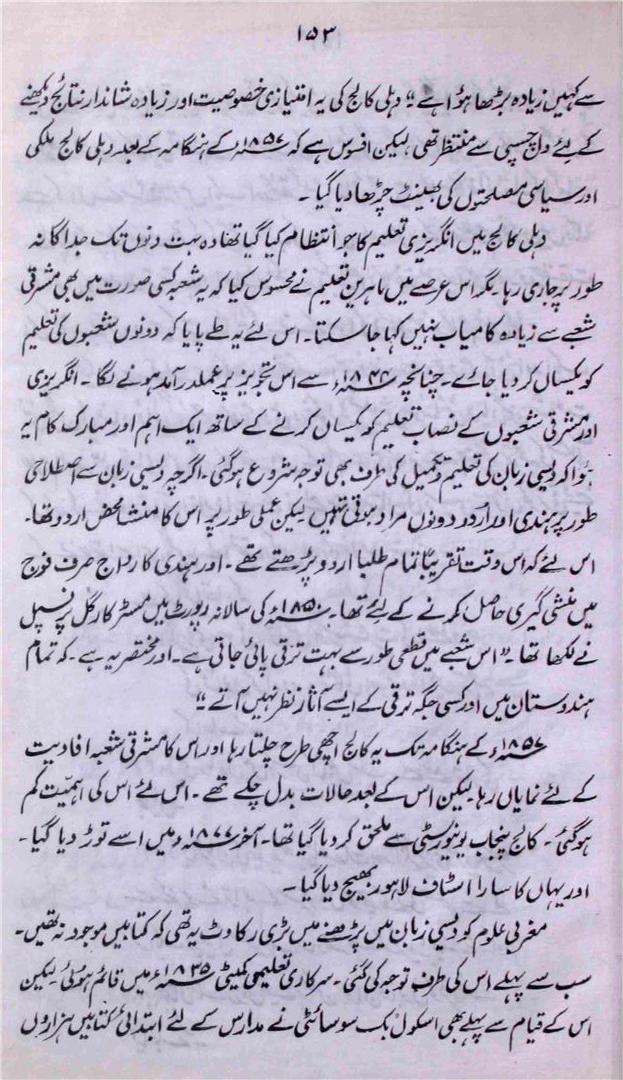 ۱۵۳
سے کہیں زیادہ بڑھا ہوا ہے“ دہلی کالج کی یہ امتیازی خصوصیت اور زیادہ شاندار نتائج دیکھنے
کے لئے دلچسپی سے منتظر تھی لیکن افسوس ہے کہ ۱۸۵۷ء کے ہنگامہ کے بعد دہلی کالج ملکی
اور سیاسی مصلحتوں کی بھینٹ چڑھا دیا گیا ۔
دہلی کالج میں انگریزی تعلیم کا جو انتظام کیا گیا تھا وہ بہت دنوں تک جداگانہ
طور پر جاری رہا ۔ مگر اس عرصے میں ماہرین تعلیم نے محسوس کیا کہ یہ شعبہ کسی صورت میں بھی مشرقی
شعبے سے زیادہ کامیاب نہیں کہا جا سکتا ۔ اس لئے یہ طے پایا کہ دونوں شعبوں کی تعلیم
کو یکساں کر دیا جائے ۔ چنانچہ ۱۸۴۴ء سے اس تجویز پر عملدرآمد ہونے لگا ۔ انگریزی
اور مشرقی شعبوں کے نصاب تعلیم کو یکساں کرنے کے ساتھ ایک اہم اور مبارک کام یہ
ہوا کہ دیسی زبان کی تعلیم و تکمیل کی طرف بھی توجہ شروع ہو گئی ۔ اگرچہ دیسی زبان سے اصطلاحی
طور پر ہندی اور اردو دونوں مراد ہوتی تھیں لیکن عملی طور پر اس کا منشا محض اردو تھا ۔
اس لئے کہ اس وقت تقریباً تمام طلبا اردو پڑھتے تھے ۔ اور ہندی کا رواج صرف فوج
میں منشی گیری حاصل کرنے کے لئے تھا ۔ ۱۸۵۰ء کی سالانہ رپورٹ میں مسٹر کارگل پرنسپل
نے لکھا تھا ۔ ”اس شعبے میں قطعی طور سے بہت ترقی پائی جاتی ہے ۔ اور مختصر یہ ہے ۔ کہ تمام
ہندوستان میں اور کسی جگہ ترقی کے ایسے آثار نظر نہیں آتے“
۱۸۵۷ء کے ہنگامہ تک یہ کالج اچھی طرح چلتا رہا اور اس کا مشرقی شعبہ افادیت
کے لئے نمایاں رہا لیکن اس کے بعد حالات بدل چکے تھے ۔ اس لئے اس کی اہمیت کم
ہو گئی ۔ کالج پنجاب یونیورسٹی سے ملحق کر دیا گیا تھا ۔ آخر ۱۸۷۷ء میں اسے توڑ دیا گیا ۔
اور یہاں کا سارا اسٹاف لاہور بھیج دیا گیا ۔
مغربی علوم کو دیسی زبان میں پڑھنے میں بڑی رکاوٹ یہ تھی کہ کتابیں موجود نہ تھیں ۔
سب سے پہلے اس کی طرف توجہ کی گئی ۔ سرکاری تعلیمی کمیٹی ۱۸۳۵ء میں قائم ہوئی لیکن
اس کے قیام سے پہلے بھی اسکول بک سوسائٹی نے مدارس کے لئے ابتدائی کتابیں ہزاروں